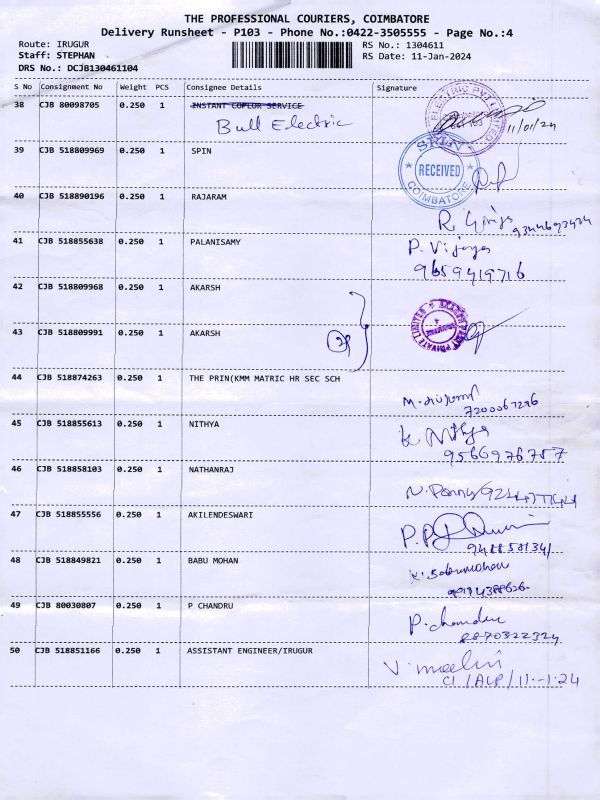 THE PROFESSIONAL COURIERS, COIMBATORE
Delivery Runsheet - P103 - Phone No.:0422-3505555 - Page No.:4
Route: IRUGUR RS No.: 1304611
Staff: STEPHAN RS Date: 11-Jan-2024
DRS No.: DCJB130461104
S No Consignment No Weight PCS Consignee Details Signature
38 CJB 80098705 0.250 1 INSTANT COPLUR SERVICE
Bull Electric 11/01/24
39 CJB 518809969 0.250 1 SPIN
SPIN RECEIVED COIMBATORE
40 CJB 518890196 0.250 1 RAJARAM
41 CJB 518855638 0.250 1 PALANISAMY P. Vijaya
9659419716
42 CJB 518809968 0.250 1 AKARSH
43 CJB 518809991 0.250 1 AKARSH
PRIVATE LIMITED
44 CJB 518874263 0.250 1 THE PRIN(KMM MATRIC HR SEC SCH
7200067296
45 CJB 518855613 0.250 1 NITHYA K. Nithya
9566976757
46 CJB 518858103 0.250 1 NATHANRAJ
47 CJB 518855556 0.250 1 AKILENDESWARI
48 CJB 518849821 0.250 1 BABU MOHAN
K. Babumohan
49 CJB 80030807 0.250 1 P CHANDRU P. chandru
8870322324
50 CJB 518851166 0.250 1 ASSISTANT ENGINEER/IRUGUR